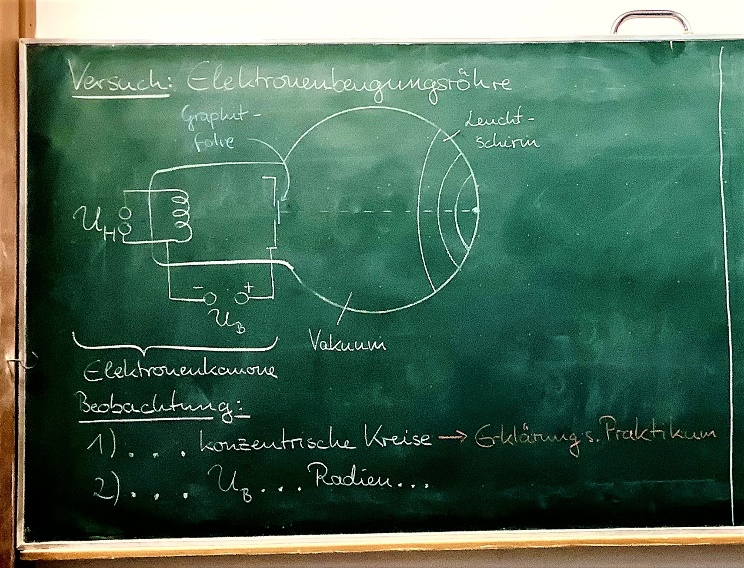 Versuch: Elektronenbeugungsröhre
Graphit-
folie
Leucht-
schirm
U_H
- +
U_B
Vakuum
Elektronenkanone
Beobachtung:
1) . . . konzentrische Kreise → Erklärung s. Praktikum
2) . . . U_B . . . Radien . . .